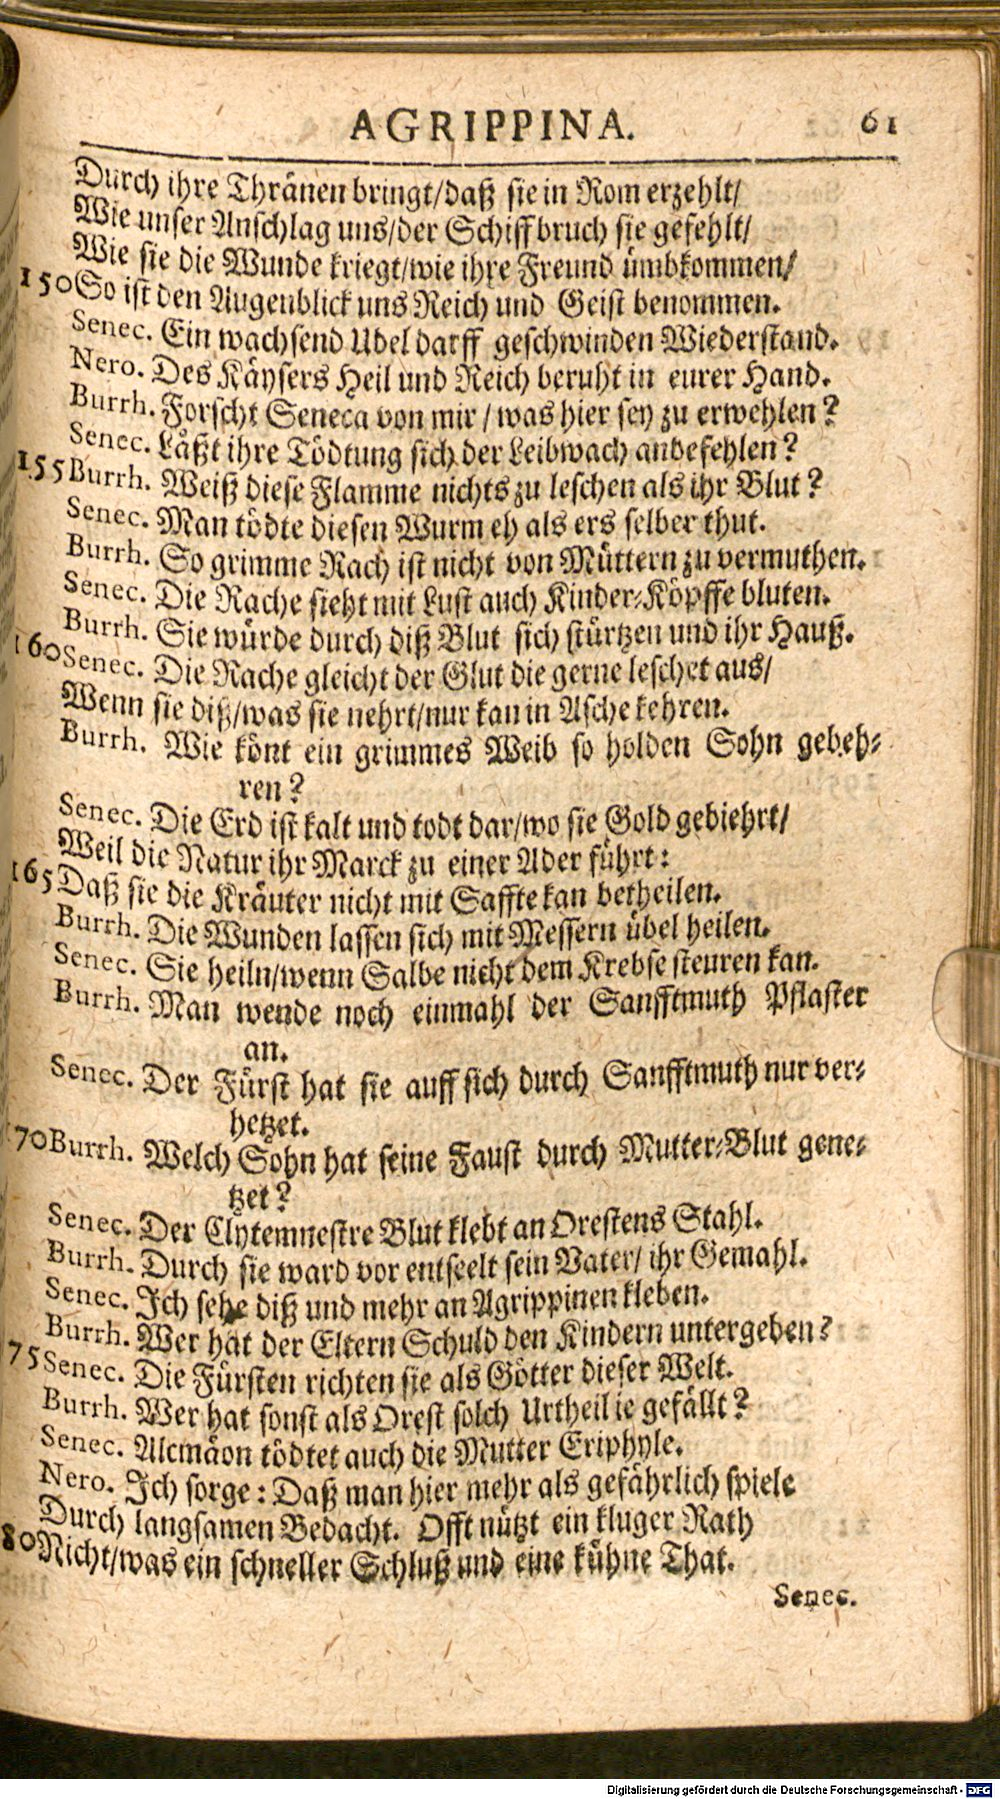 AGRIPPINA. 61
Durch ihre Thränen bringt/daß sie in Rom erzehlt/
Wie unser Anschlag uns/der Schiffbruch sie gefehlt/
Wie sie die Wunde kriegt/wie ihre Freund ümbkommen/
150 So ist den Augenblick uns Reich und Geist benommen.
Senec. Ein wachsend Ubel darff geschwinden Wiederstand.
Nero. Des Käysers Heil und Reich beruht in eurer Hand.
Burrh. Forscht Seneca von mir / was hier sey zu erwehlen?
Senec. Läßt ihre Tödtung sich der Leibwach anbefehlen?
155 Burrh. Weiß diese Flamme nichts zu leschen als ihr Blut?
Senec. Man tödte diesen Wurm eh als ers selber thut.
Burrh. So grimme Rach ist nicht von Müttern zu vermuthen.
Senec. Die Rache sieht mit Lust auch Kinder-Köpffe bluten.
Burrh. Sie würde durch diß Blut sich stürtzen und ihr Hauß.
160 Senec. Die Rache gleicht der Glut die gerne leschet aus/
Wenn sie diß/was sie nehrt/nur kan in Asche kehren.
Burrh. Wie könt ein grimmes Weib so holden Sohn gebeh-
ren?
Senec. Die Erd ist kalt und todt dar/wo sie Gold gebiehrt/
Weil die Natur ihr Marck zu einer Ader führt:
165 Daß sie die Kräuter nicht mit Saffte kan betheilen.
Burrh. Die Wunden lassen sich mit Messern übel heilen.
Senec. Sie heiln/wenn Salbe nicht dem Krebse steuren kan.
Burrh. Man wende noch einmahl der Sanfftmuth Pflaster
an.
Senec. Der Fürst hat sie auff sich durch Sanfftmuth nur ver-
hetzet.
70 Burrh. Welch Sohn hat seine Faust durch Mutter-Blut gene-
tzet?
Senec. Der Clytemnestre Blut klebt an Orestens Stahl.
Burrh. Durch sie ward vor entseelt sein Vater/ ihr Gemahl.
Senec. Ich sehe diß und mehr an Agrippinen kleben.
Burrh. Wer hat der Eltern Schuld den Kindern untergeben?
75 Senec. Die Fürsten richten sie als Götter dieser Welt.
Burrh. Wer hat sonst als Orest solch Urtheil ie gefällt?
Senec. Alcmäon tödtet auch die Mutter Eriphyle.
Nero. Ich sorge: Daß man hier mehr als gefährlich spiele
Durch langsamen Bedacht. Offt nützt ein kluger Rath
80 Nicht/was ein schneller Schluß und eine kühne That.
Senec.
Digitalisierung gefördert durch die Deutsche Forschungsgemeinschaft - DFG